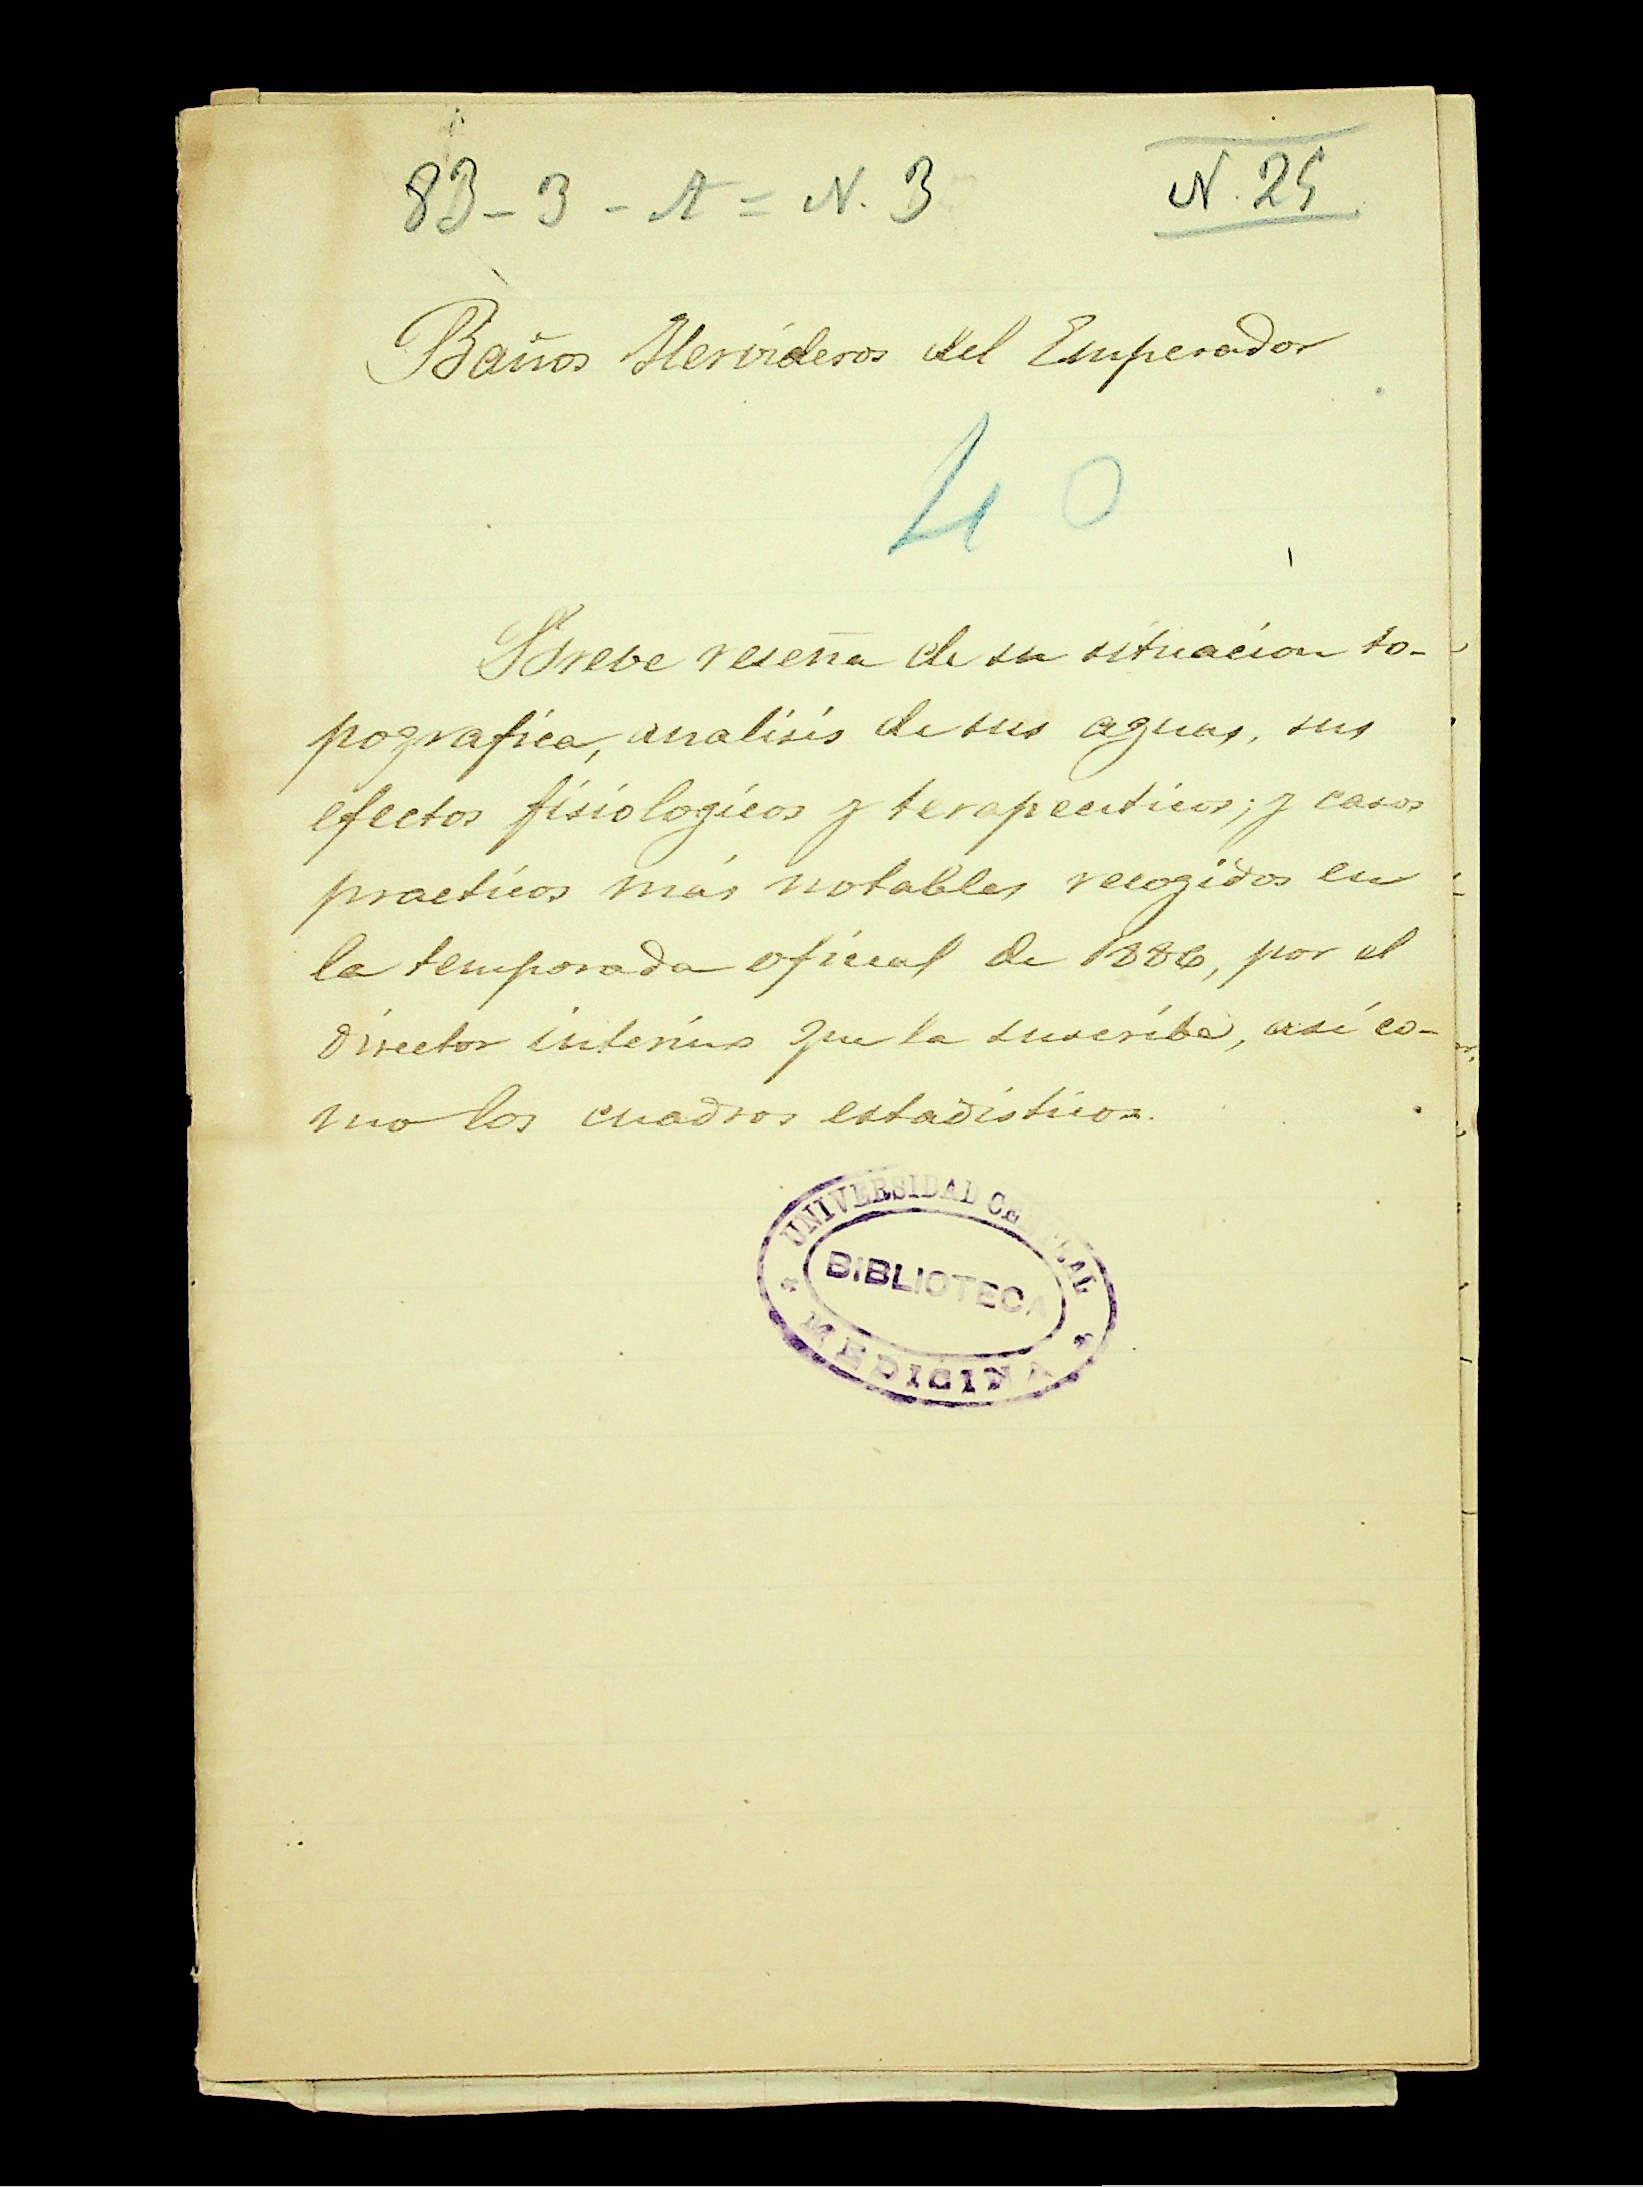 83-3-A=N.3
N.25
Baños Hervideros del Emperador
40
Breve reseña de su situacion to-
pografica, analisis de sus aguas, sus
efectos fisiologicos y terapeuticos; y casos
practicos más notables recogidos en
la temporada oficial de 1886, por el
Director interino que la suscribe, así co-
mo los cuadros estadisticos.
UNIVERSIDAD CENTRAL
BIBLIOTECA
MEDICINA